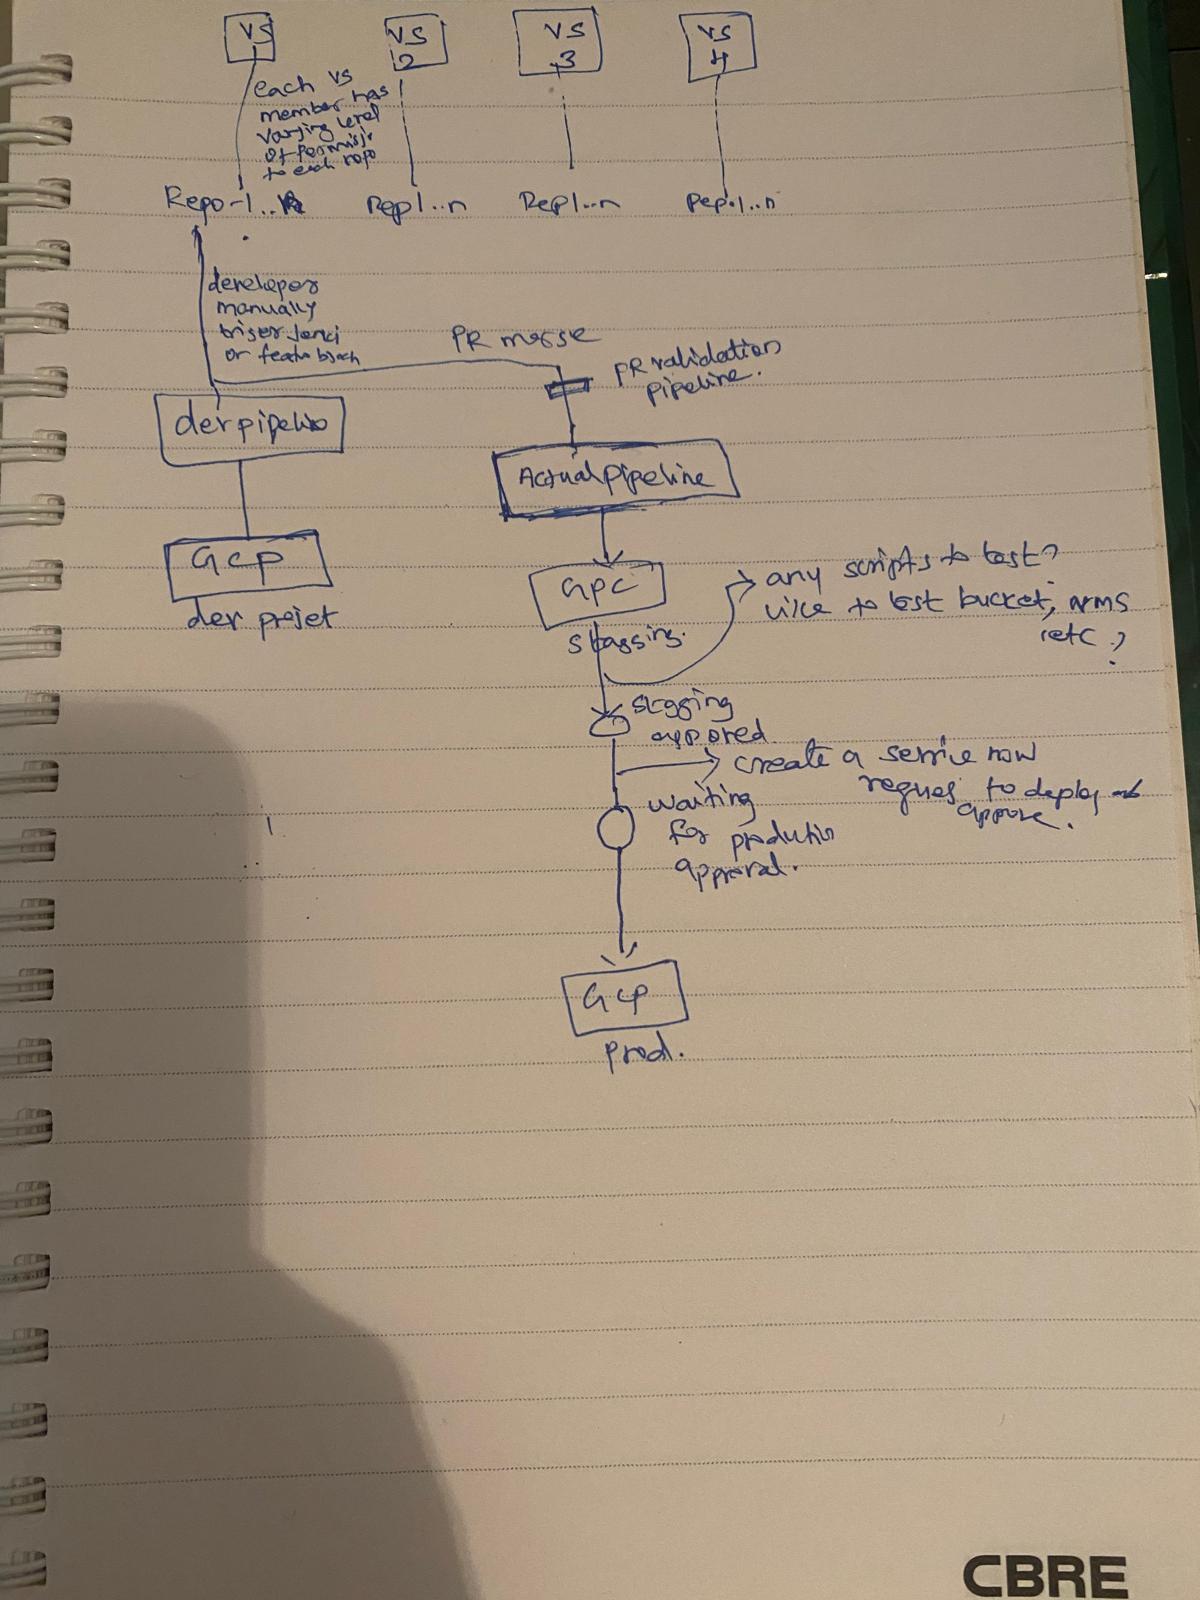 VS
VS
2
VS
3
VS
4
each VS
member has
varying level
of permissi
to each repo
Repo-1..n
Rep1..n
Rep1..n
Rep.1..n
developer
manually
or featu
PR merge
PR validation
pipeline.
dev pipeline
Actual pipeline
GCP
dev projet
GPC
stagging.
any scripts to test?
like to test bucket,
etc ?
stagging
create a service now
reques to deploy
waiting
for production
approval.
GCP
prod.
CBRE